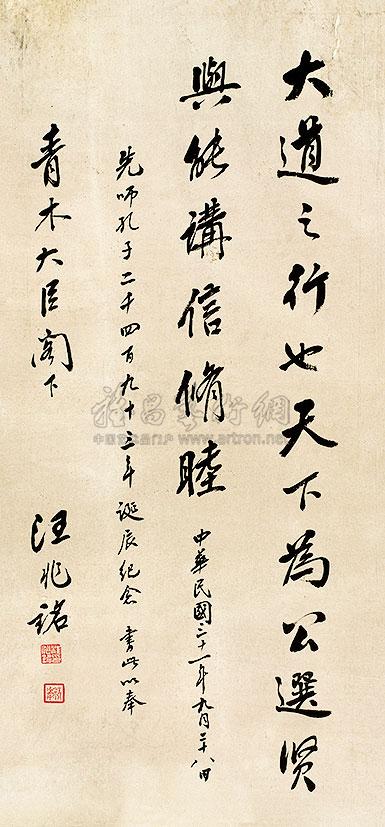 大道之行也天下為公選賢
與能講信脩睦 中華民國三十一年九月二十八日
先師孔子二千四百九十三年誕辰紀念 書此以奉
青木大臣閣下 汪兆銘
雅昌藝術網
中国艺术品门户 www.artron.net